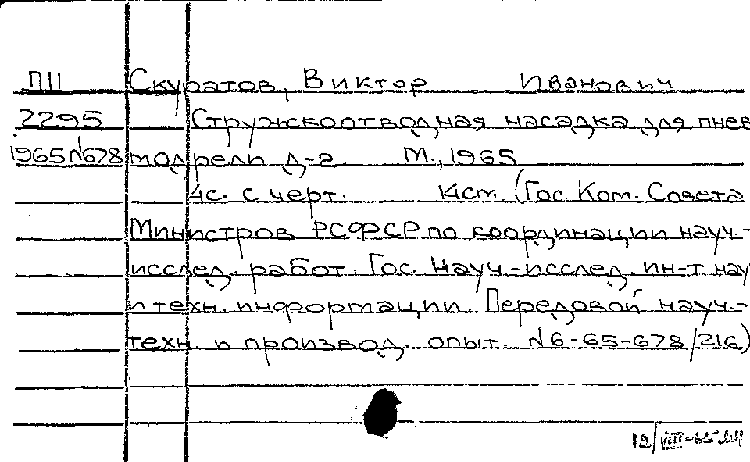 ПП Скуратов, Виктор Иванович
2295 Стружкоотводная насадка для пнев
1965 N678 модрели Д-2 М., 1965
4с. с черт. (Гос. Ком. Совета
Министров РСФСР по координации науч.-
исслед. работ. Гос. Науч.-исслед. ин-т нау
и техн. информации. Передовой науч.-
техн. и производ. опыт. N6-65-678/216)